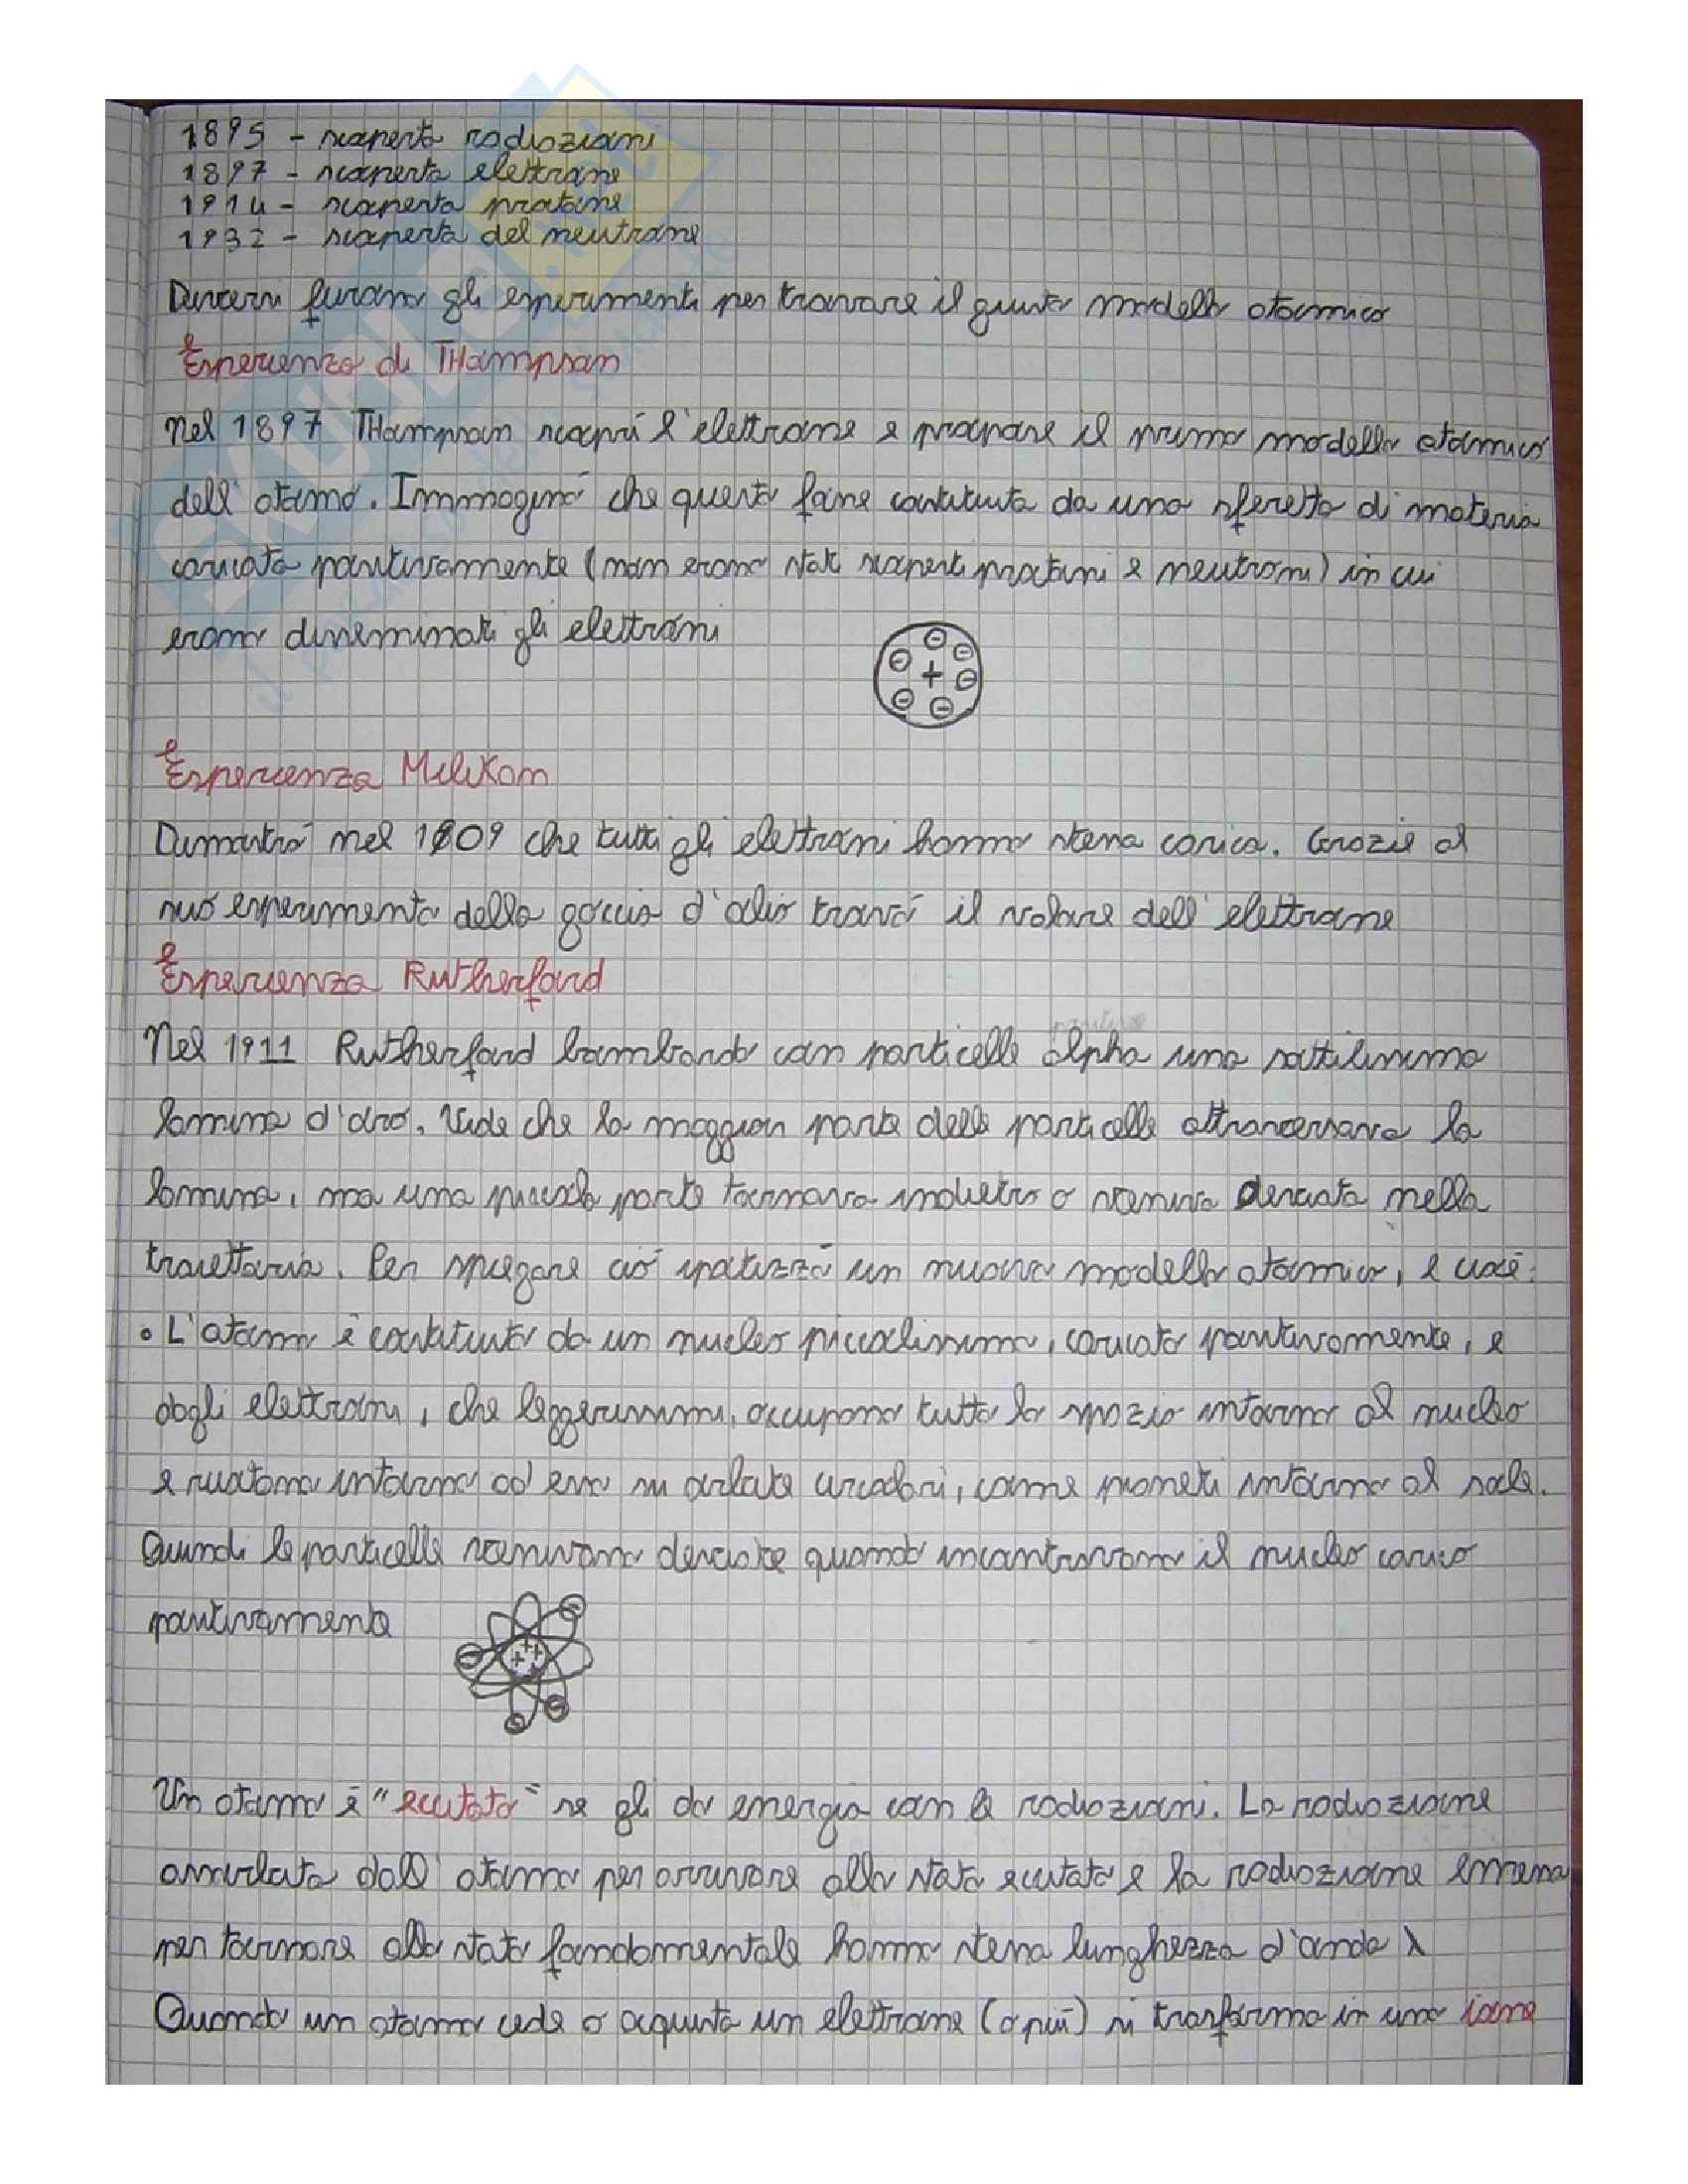 1895 - scoperta radiazioni
1897 - scoperta elettrone
1914 - scoperta protone
1932 - scoperta del neutrone
Diversi furono gli esperimenti per trovare il giusto modello atomico
Esperienza di THompson
Nel 1897 THompson scoprì l'elettrone e propone il primo modello atomico
dell'atomo. Immaginò che questo fosse costituito da una sferetta di materia
caricata positivamente (non erano stati scoperti protoni e neutroni) in cui
erano disseminati gli elettroni
Esperienza Milikan
Dimostrò nel 1909 che tutti gli elettroni hanno stessa carica. Grazie al
suo esperimento della goccia d'olio trovò il valore dell'elettrone
Esperienza Rutherford
Nel 1911 Rutherford bombardò con particelle alpha una sottilissima
lamina d'oro. Vide che la maggior parte delle particelle attraversava la
lamina, ma una piccola parte tornava indietro o veniva deviata nella
traiettoria. Per spiegare ciò ipotizzò un nuovo modello atomico, e cioè:
• L'atomo è costituito da un nucleo piccolissimo, caricato positivamente, e
dagli elettroni, che leggerissimi, occupano tutto lo spazio intorno al nucleo
e ruotano intorno ad esso su orbite circolari, come pianeti intorno al sole.
Quindi le particelle venivano deviate quando incontravano il nucleo carico
positivamente
Un atomo è "eccitato" se gli do energia con le radiazioni. La radiazione
assorbita dall'atomo per arrivare allo stato eccitato e la radiazione emessa
per tornare allo stato fondamentale hanno stessa lunghezza d'onda λ
Quando un atomo cede o acquista un elettrone (o più) si trasforma in uno ione
SKUOLA.net